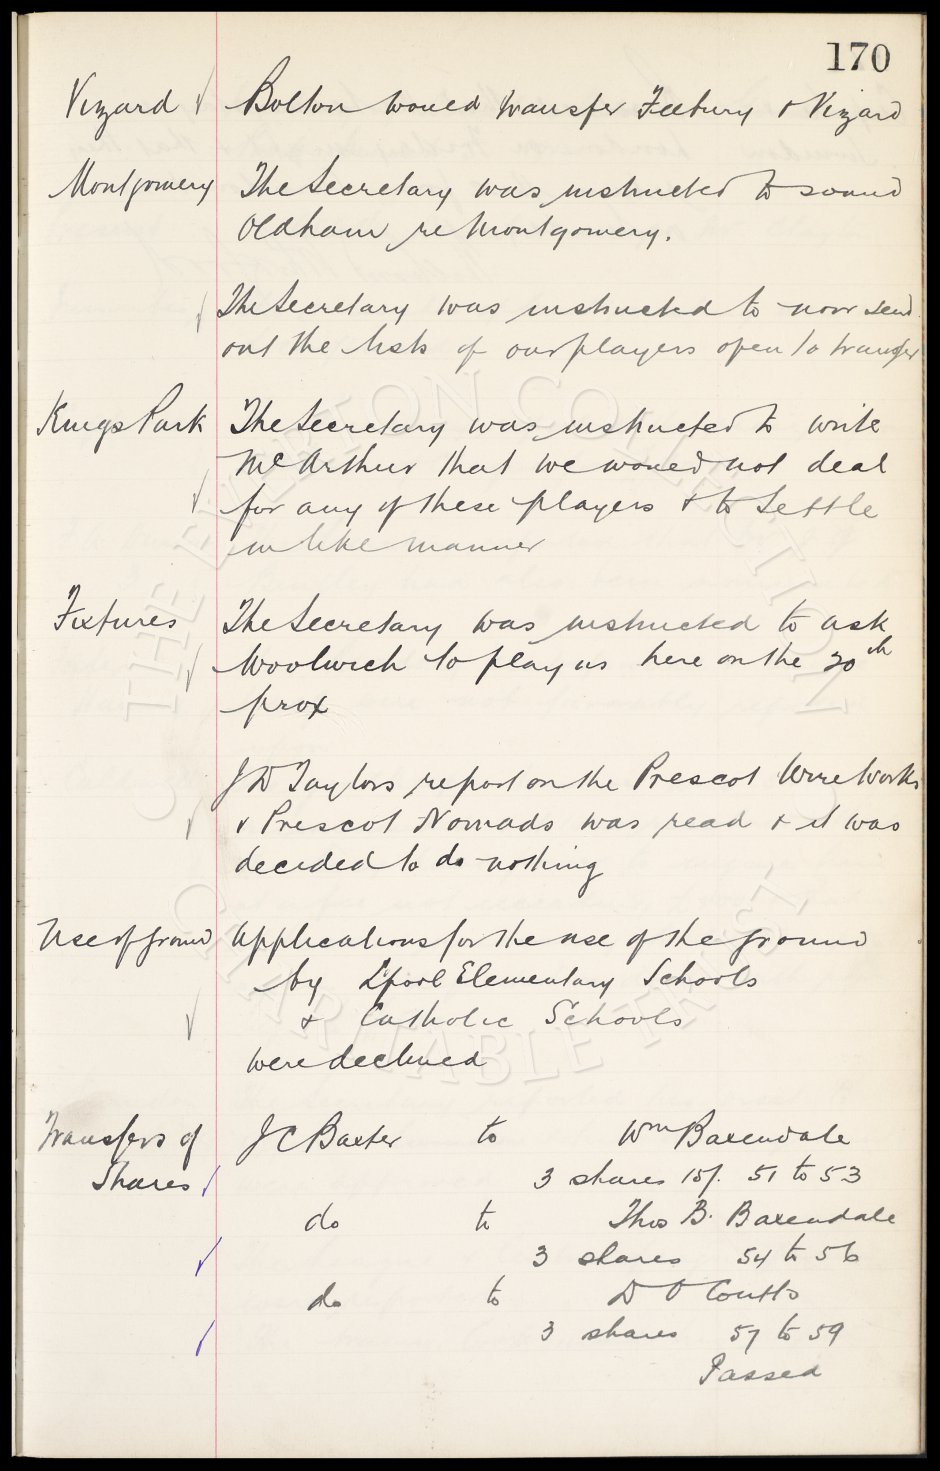 170
Vizard Bolton would transfer Feebury & Vizard
Montgomery The Secretary was instructed to sound
Oldham re Montgomery.
The Secretary was instructed to now send
out the lists of our players open to transfer
Kings Park The Secretary was instructed to write
McArthur that we would not deal
for any of these players & to Settle
in like manner
Fixtures The Secretary was instructed to ask
Woolwich to play us here on the 20th
prox
J D Taylors report on the Prescot Wire Works
& Prescot Nomads was read & it was
decided to do nothing
Use of ground Applications for the use of the ground
by L'pool Elementary Schools
& Catholic Schools
were declined
Transfers of J C Baxter to Wm Baxendale
Shares 3 shares 15/. 51 to 53
do to Thos B. Baxendale
3 shares 54 to 56
do to D O Coutts
3 shares 57 to 59
Passed
THE EVERTON COLLECTION
CHARITABLE TRUST